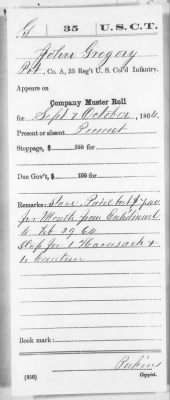 G | 35 | U.S.C.T.
John Gregory
Pvt, Co. A, 35 Reg't U. S. Col'd Infantry.
Appears on
Company Muster Roll
for Sept & October, 1864.
Present or absent Present
Stoppage, $ 100 for
Due Gov't, $ 100 for
Remarks: Slave Paid but $7 per
for Month from Enlistment
to Feb 29 64
Stop for 1 Haversack &
1 Canteen
Book mark:
Perkins
(358) Copyist.